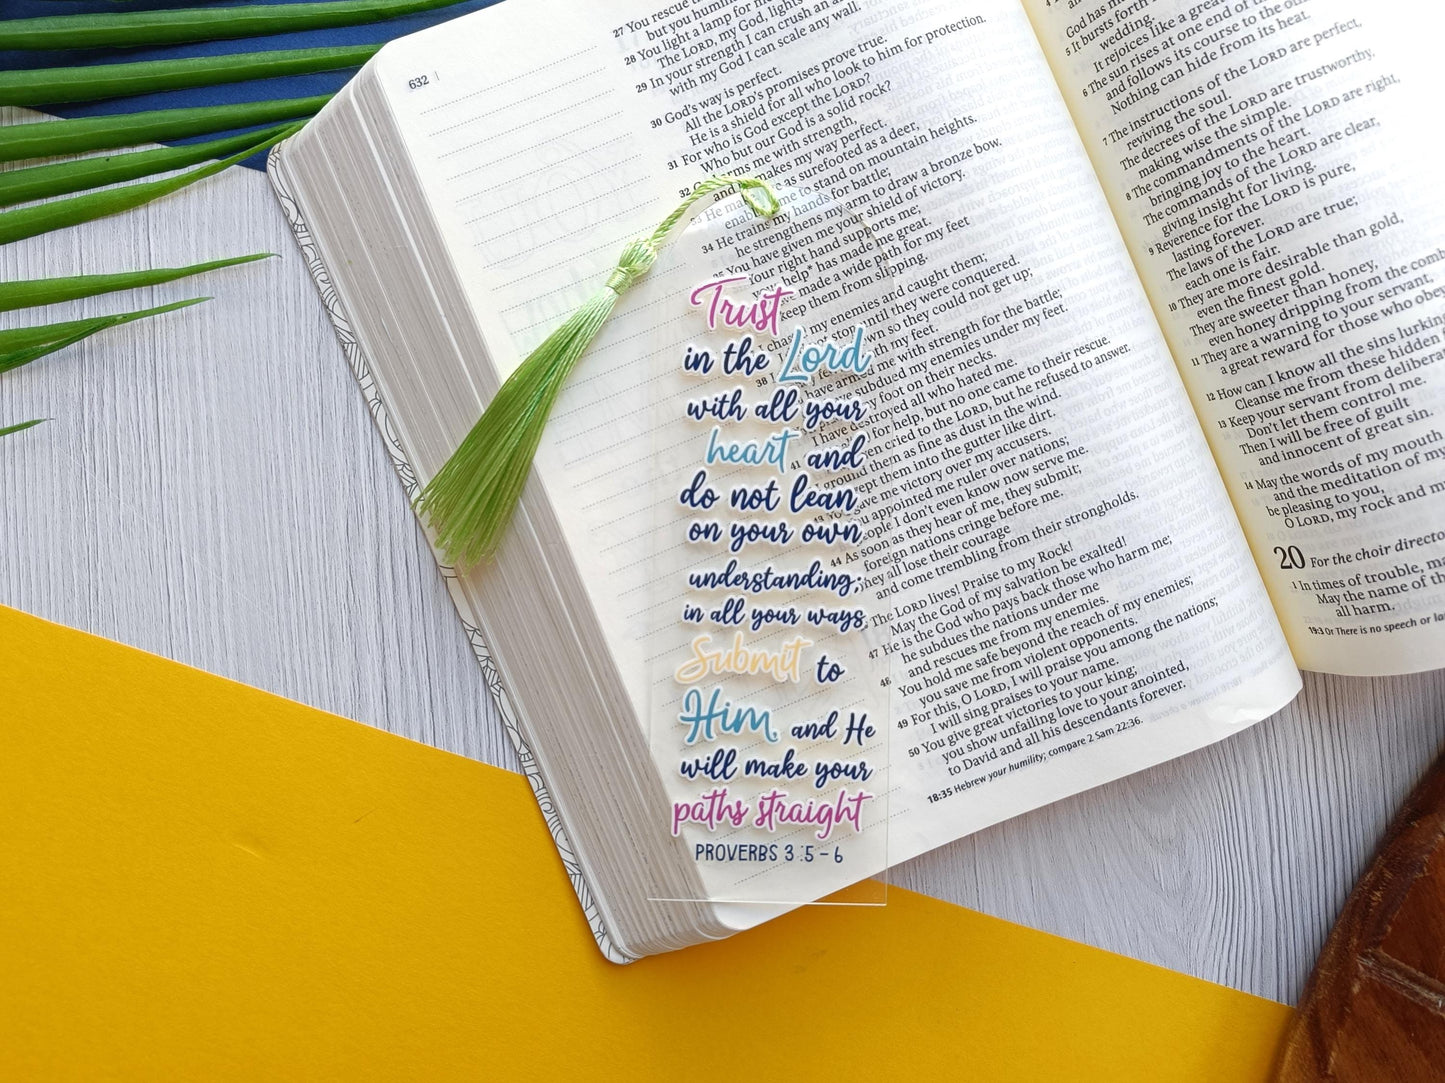 632
27 You rescue
but you humili
28 You light a lamp for m
The LORD, my God, lights
29 In your strength I can crush an a
with my God I can scale any wall.
30 God's way is perfect.
All the LORD's promises prove true.
He is a shield for all who look to him for protection.
31 For who is God except the LORD?
Who but our God is a solid rock?
32 arms me with strength,
and makes my way perfect.
33 He ma as surefooted as a deer,
enab me to stand on mountain heights.
34 He trains my hands for battle;
he strengthens my arm to draw a bronze bow.
35 You have given me your shield of victory.
Your right hand supports me;
your help* has made me great.
made a wide path for my feet
keep them from slipping.
my enemies and caught them;
stop until they were conquered.
so they could not get up;
my feet.
me with strength for the battle;
subdued my enemies under my feet.
my foot on their necks.
have destroyed all who hated me.
for help, but no one came to their rescue.
cried to the LORD, but he refused to answer.
I ground them as fine as dust in the wind.
swept them into the gutter like dirt.
gave me victory over my accusers.
appointed me ruler over nations;
people I don't even know now serve me.
44 As soon as they hear of me, they submit;
foreign nations cringe before me.
They all lose their courage
and come trembling from their strongholds.
The LORD lives! Praise to my Rock!
May the God of my salvation be exalted!
47 He is the God who pays back those who harm me;
he subdues the nations under me
and rescues me from my enemies.
You hold me safe beyond the reach of my enemies;
you save me from violent opponents.
49 For this, O LORD, I will praise you among the nations;
I will sing praises to your name.
50 You give great victories to your king;
you show unfailing love to your anointed,
to David and all his descendants forever.
18:35 Hebrew your humility; compare 2 Sam 22:36.
Trust
in the Lord
with all your
heart and
do not lean
on your own
understanding;
in all your ways
Submit to
Him, and He
will make your
paths straight
PROVERBS 3:5-6
God has m
5 It bursts forth
wedding.
It rejoices like a great
6 The sun rises at one end of the
and follows its course to the o
Nothing can hide from its heat.
7 The instructions of the LORD are perfect,
reviving the soul.
The decrees of the LORD are trustworthy,
making wise the simple.
8 The commandments of the LORD are right,
bringing joy to the heart.
The commands of the LORD are clear,
giving insight for living.
9 Reverence for the LORD is pure,
lasting forever.
The laws of the LORD are true;
each one is fair.
10 They are more desirable than gold,
even the finest gold.
They are sweeter than honey,
even honey dripping from the comb
11 They are a warning to your servant,
a great reward for those who obey
12 How can I know all the sins lurking
Cleanse me from these hidden
13 Keep your servant from deliberat
Don't let them control me.
Then I will be free of guilt
and innocent of great sin.
14 May the words of my mouth
and the meditation of my
be pleasing to you,
O LORD, my rock and m
20 For the choir directo
1 In times of trouble, ma
May the name of th
all harm.
19:3 Or There is no speech or la